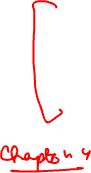 Chapter 4